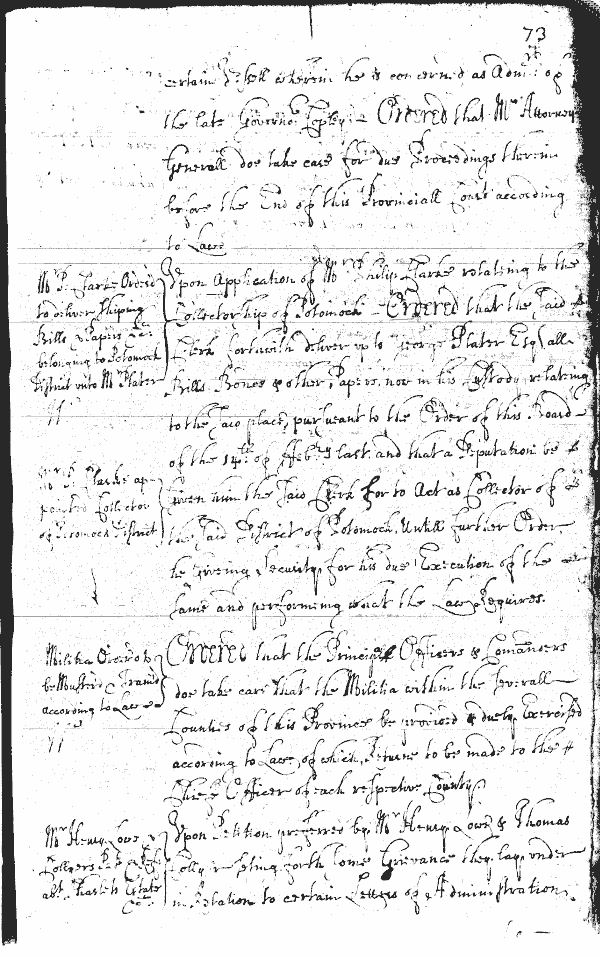 73
certain    wherein he is concerned as Admr: of
the late Governor Copley - Ordered that Mr Attorney
Generall doe take care for due Proceedings therein
before the End of this Provinciall Court according
to Law
Mr P. Clarke Order'd
to deliver Shiping
Bills & Papers &c:
belonging to Potomock
District unto Mr Plater
Upon Application of Mr Philip Clarke relating to the
Collectorship of Potomock - Ordered that the said
Clerk forthwith deliver up to George Plater Esqr all
Bills Bonds & other Papers now in his Custody relating
to the said place, pursuant to the Order of this Board
of the 14th of Febry last and that a Deputation be
Given him the said Clerk for to Act as Collector of
the said District of Potomock Untill further Order
he Giveing Security for his due Execution of the
same and performing what the Law Requires.
Mr P. Clarke ap-
pointed Collector
of Potomock District
Militia Order'd to
be Muster'd & Train'd
according to Law
Ordered that the Principll Officers & Comanders
doe take care that the Militia within the severall
Counties of this Province be provided & duely Exercised
according to Law, of which Returne to be made to the
Chiefe Officer of each respective County
Mr Henry Lowe &
Colliers Peticon
abt. Estate
&c:
Upon Petition preferred by Mr Henry Lowe & Thomas
Collier seting forth some Grievance they lay under
in Relation to certain Letters of Administration